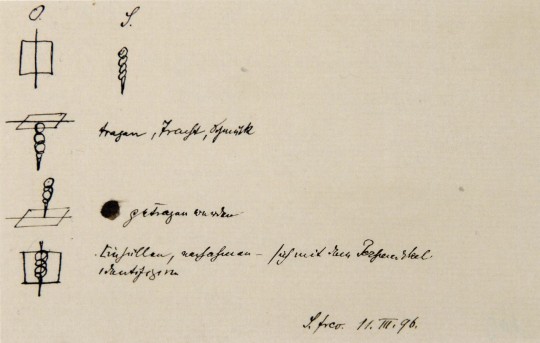 O. S.
tragen, Tracht, Schmuck
getragen werden
Einhüllen, nachahmen – sich mit dem
identifizieren
11. III. 96.